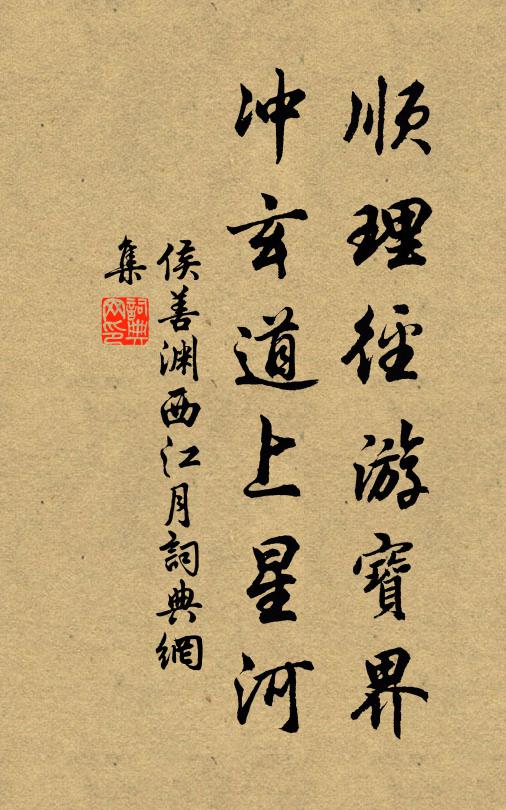 順理徑游寶界
冲玄道上星河
侯善渊西江月詞典網
集
詞典
网印